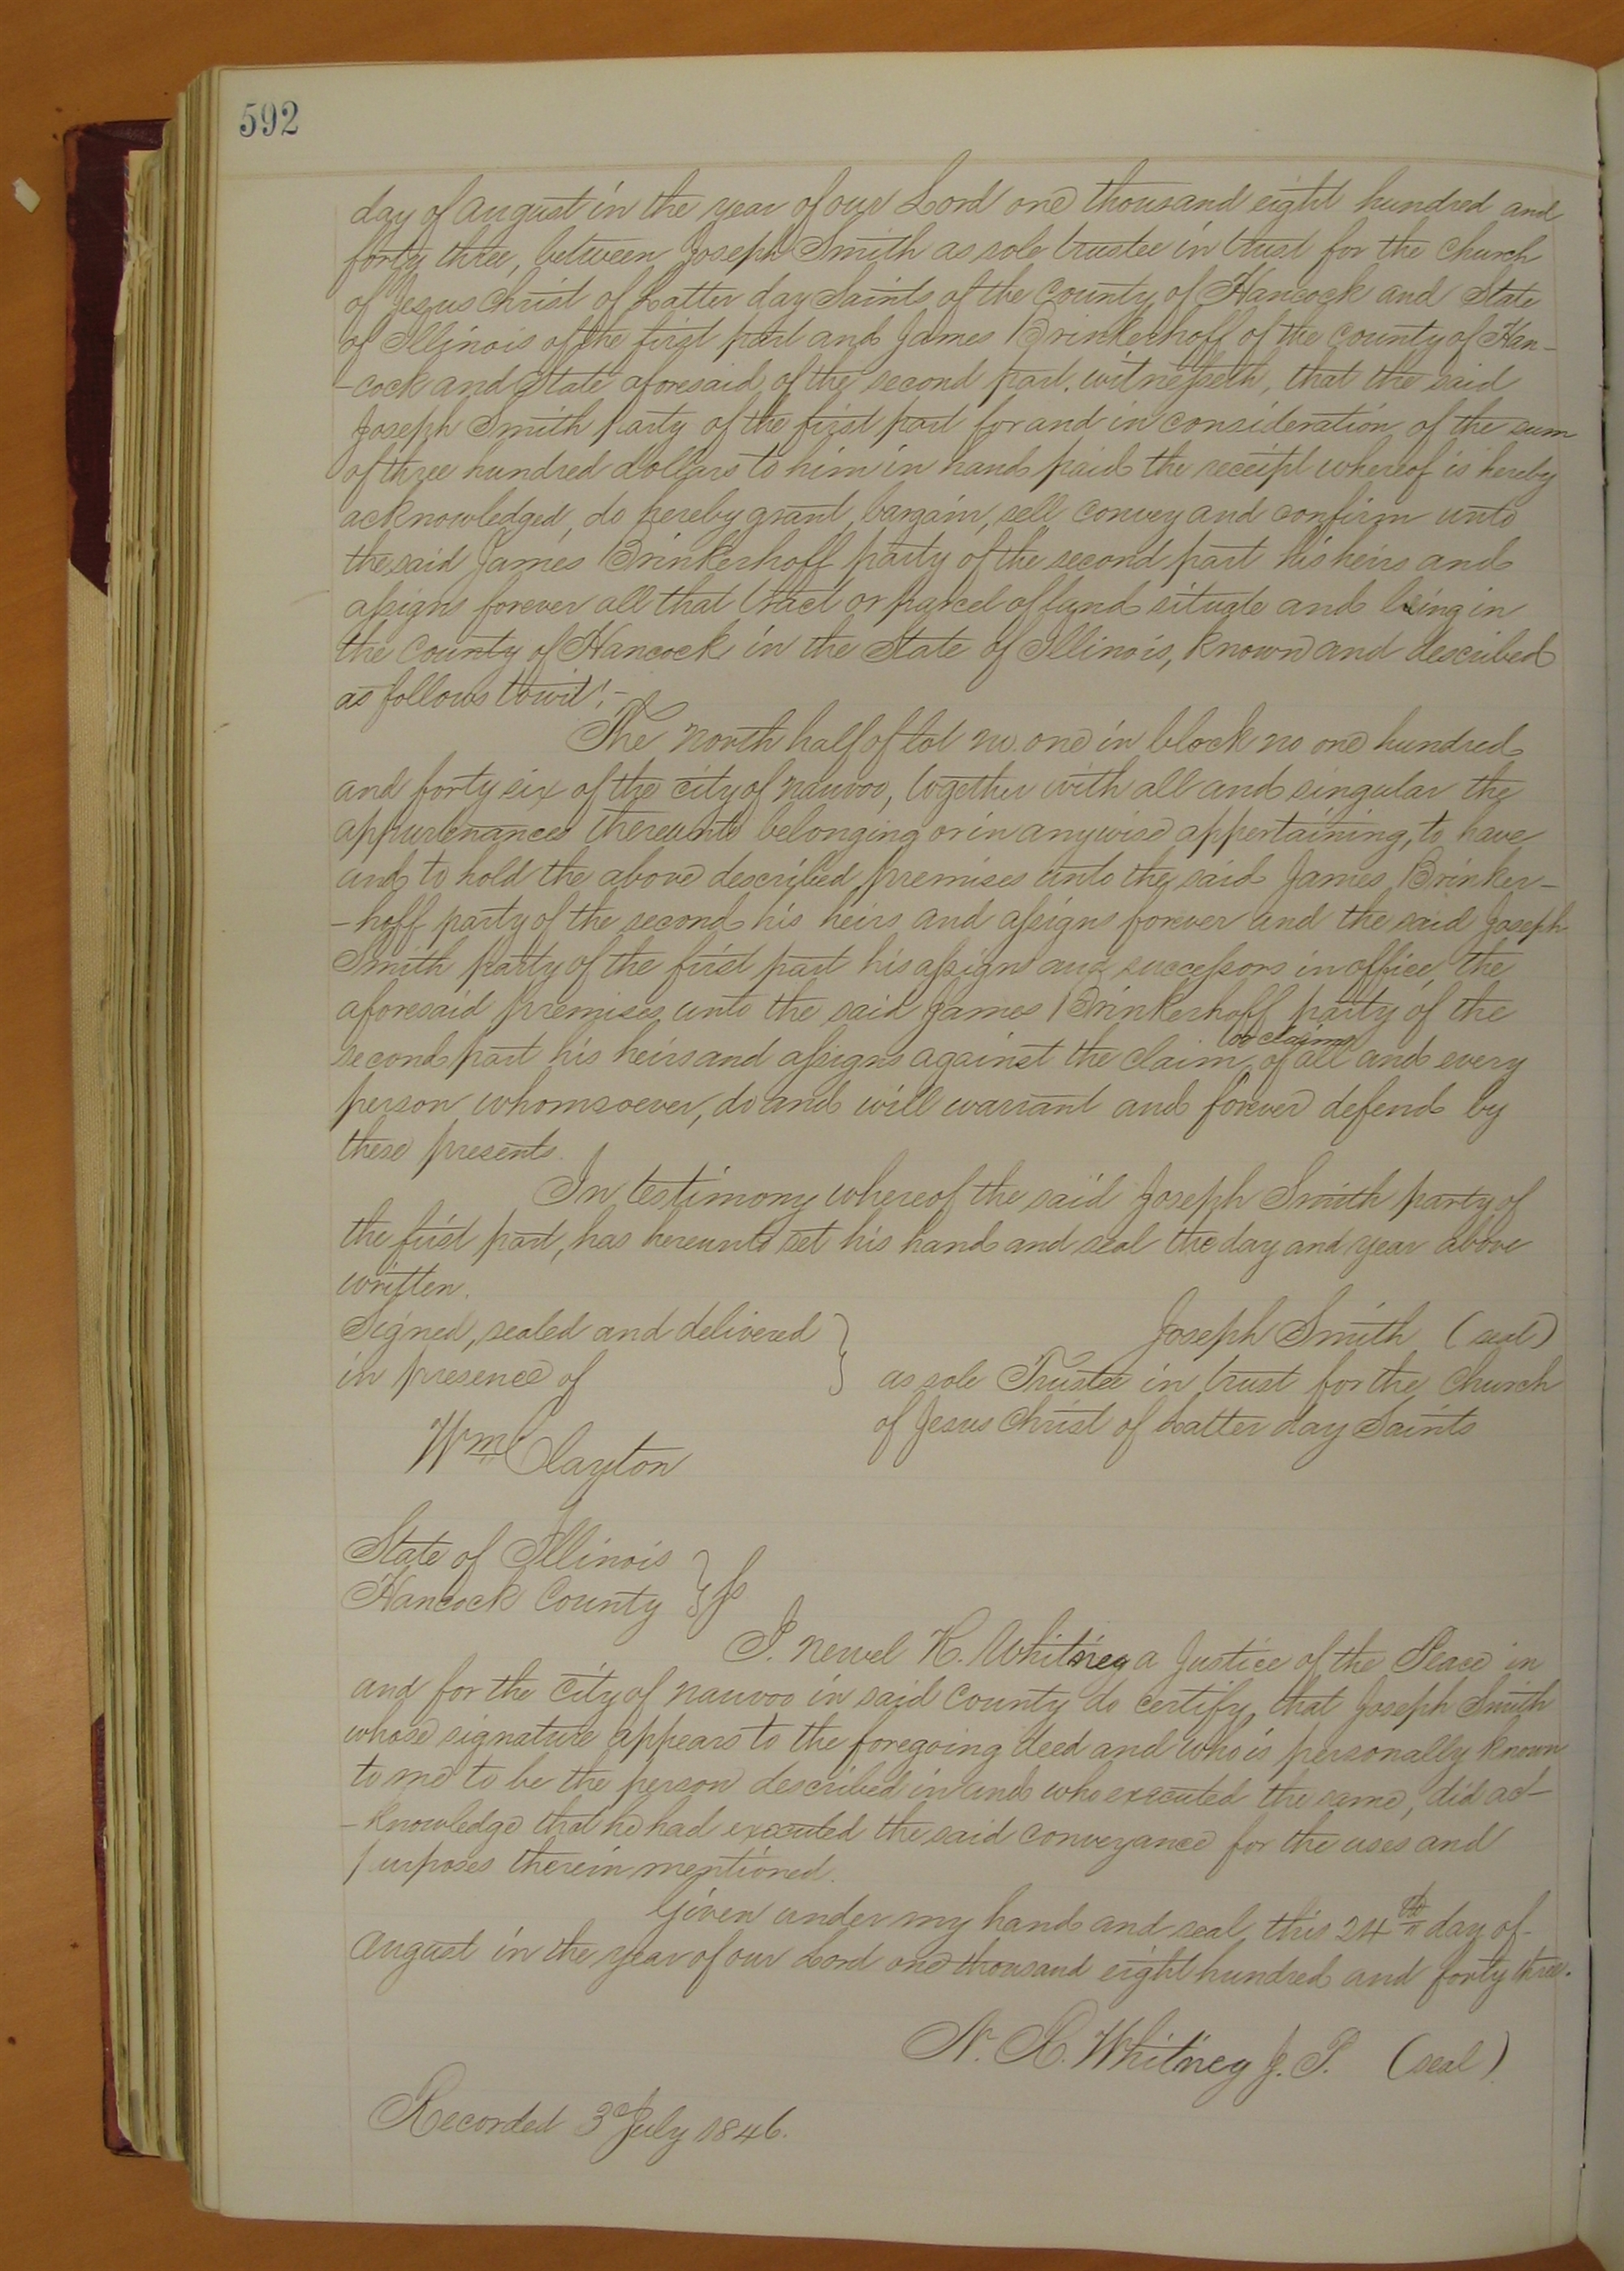 592
day of August in the year of our Lord one thousand eight hundred and
forty three, between Joseph Smith as sole trustee in trust for the Church
of Jesus Christ of Latter day Saints of the County of Hancock and State
of Illinois of the first part and James Brinkerhoff of the County of Han-
-cock and State aforesaid of the second part. witnesseth, that the said
Joseph Smith party of the first part for and in consideration of the sum
of three hundred dollars to him in hand paid the receipt whereof is hereby
acknowledged, do hereby grant, bargain, sell convey and confirm unto
the said James Brinkerhoff party of the second part his heirs and
assigns forever all that tract or parcel of land situate and being in
the County of Hancock in the State of Illinois, known and described
as follows towit:-
The north half of lot no. one in block no one hundred
and forty six of the city of nauvoo, together with all and singular the
appurtenances thereunto belonging or in anywise appertaining, to have
and to hold the above described premises unto the said James Brinker-
-hoff party of the second his heirs and assigns forever and the said Joseph
Smith party of the first part his assigns and successors in office, the
aforesaid premises unto the said James Brinkerhoff party of the
second part his heirs and assigns against the claim or claims of all and every
person whomsoever, do and will warrant and forever defend by
these presents.
In testimony whereof the said Joseph Smith party of
the first part, has hereunto set his hand and seal the day and year above
written.
Signed, sealed and delivered } Joseph Smith (seal)
in presence of as sole Trustee in trust for the Church
of Jesus Christ of Latter day Saints
Wm Clayton
State of Illinois }
Hancock County } ss
I. newel K. Whitney a Justice of the Peace in
and for the city of nauvoo in said County do certify, that Joseph Smith
whose signature appears to the foregoing deed and who is personally known
to me to be the person described in and who executed the same, did ac-
-knowledge that he had executed the said conveyance for the uses and
purposes therein mentioned.
Given under my hand and seal, this 24th day of
August in the year of our Lord one thousand eight hundred and forty three.
N. K. Whitney J. P. (seal)
Recorded 3d July 1846.